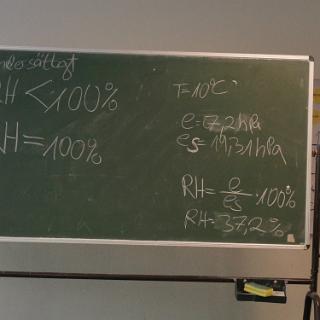 RH <100%
RH=100%
T=10°C
e=7,2hPa
es=19,31hPa
RH= e/es ·100%
RH=37,2%